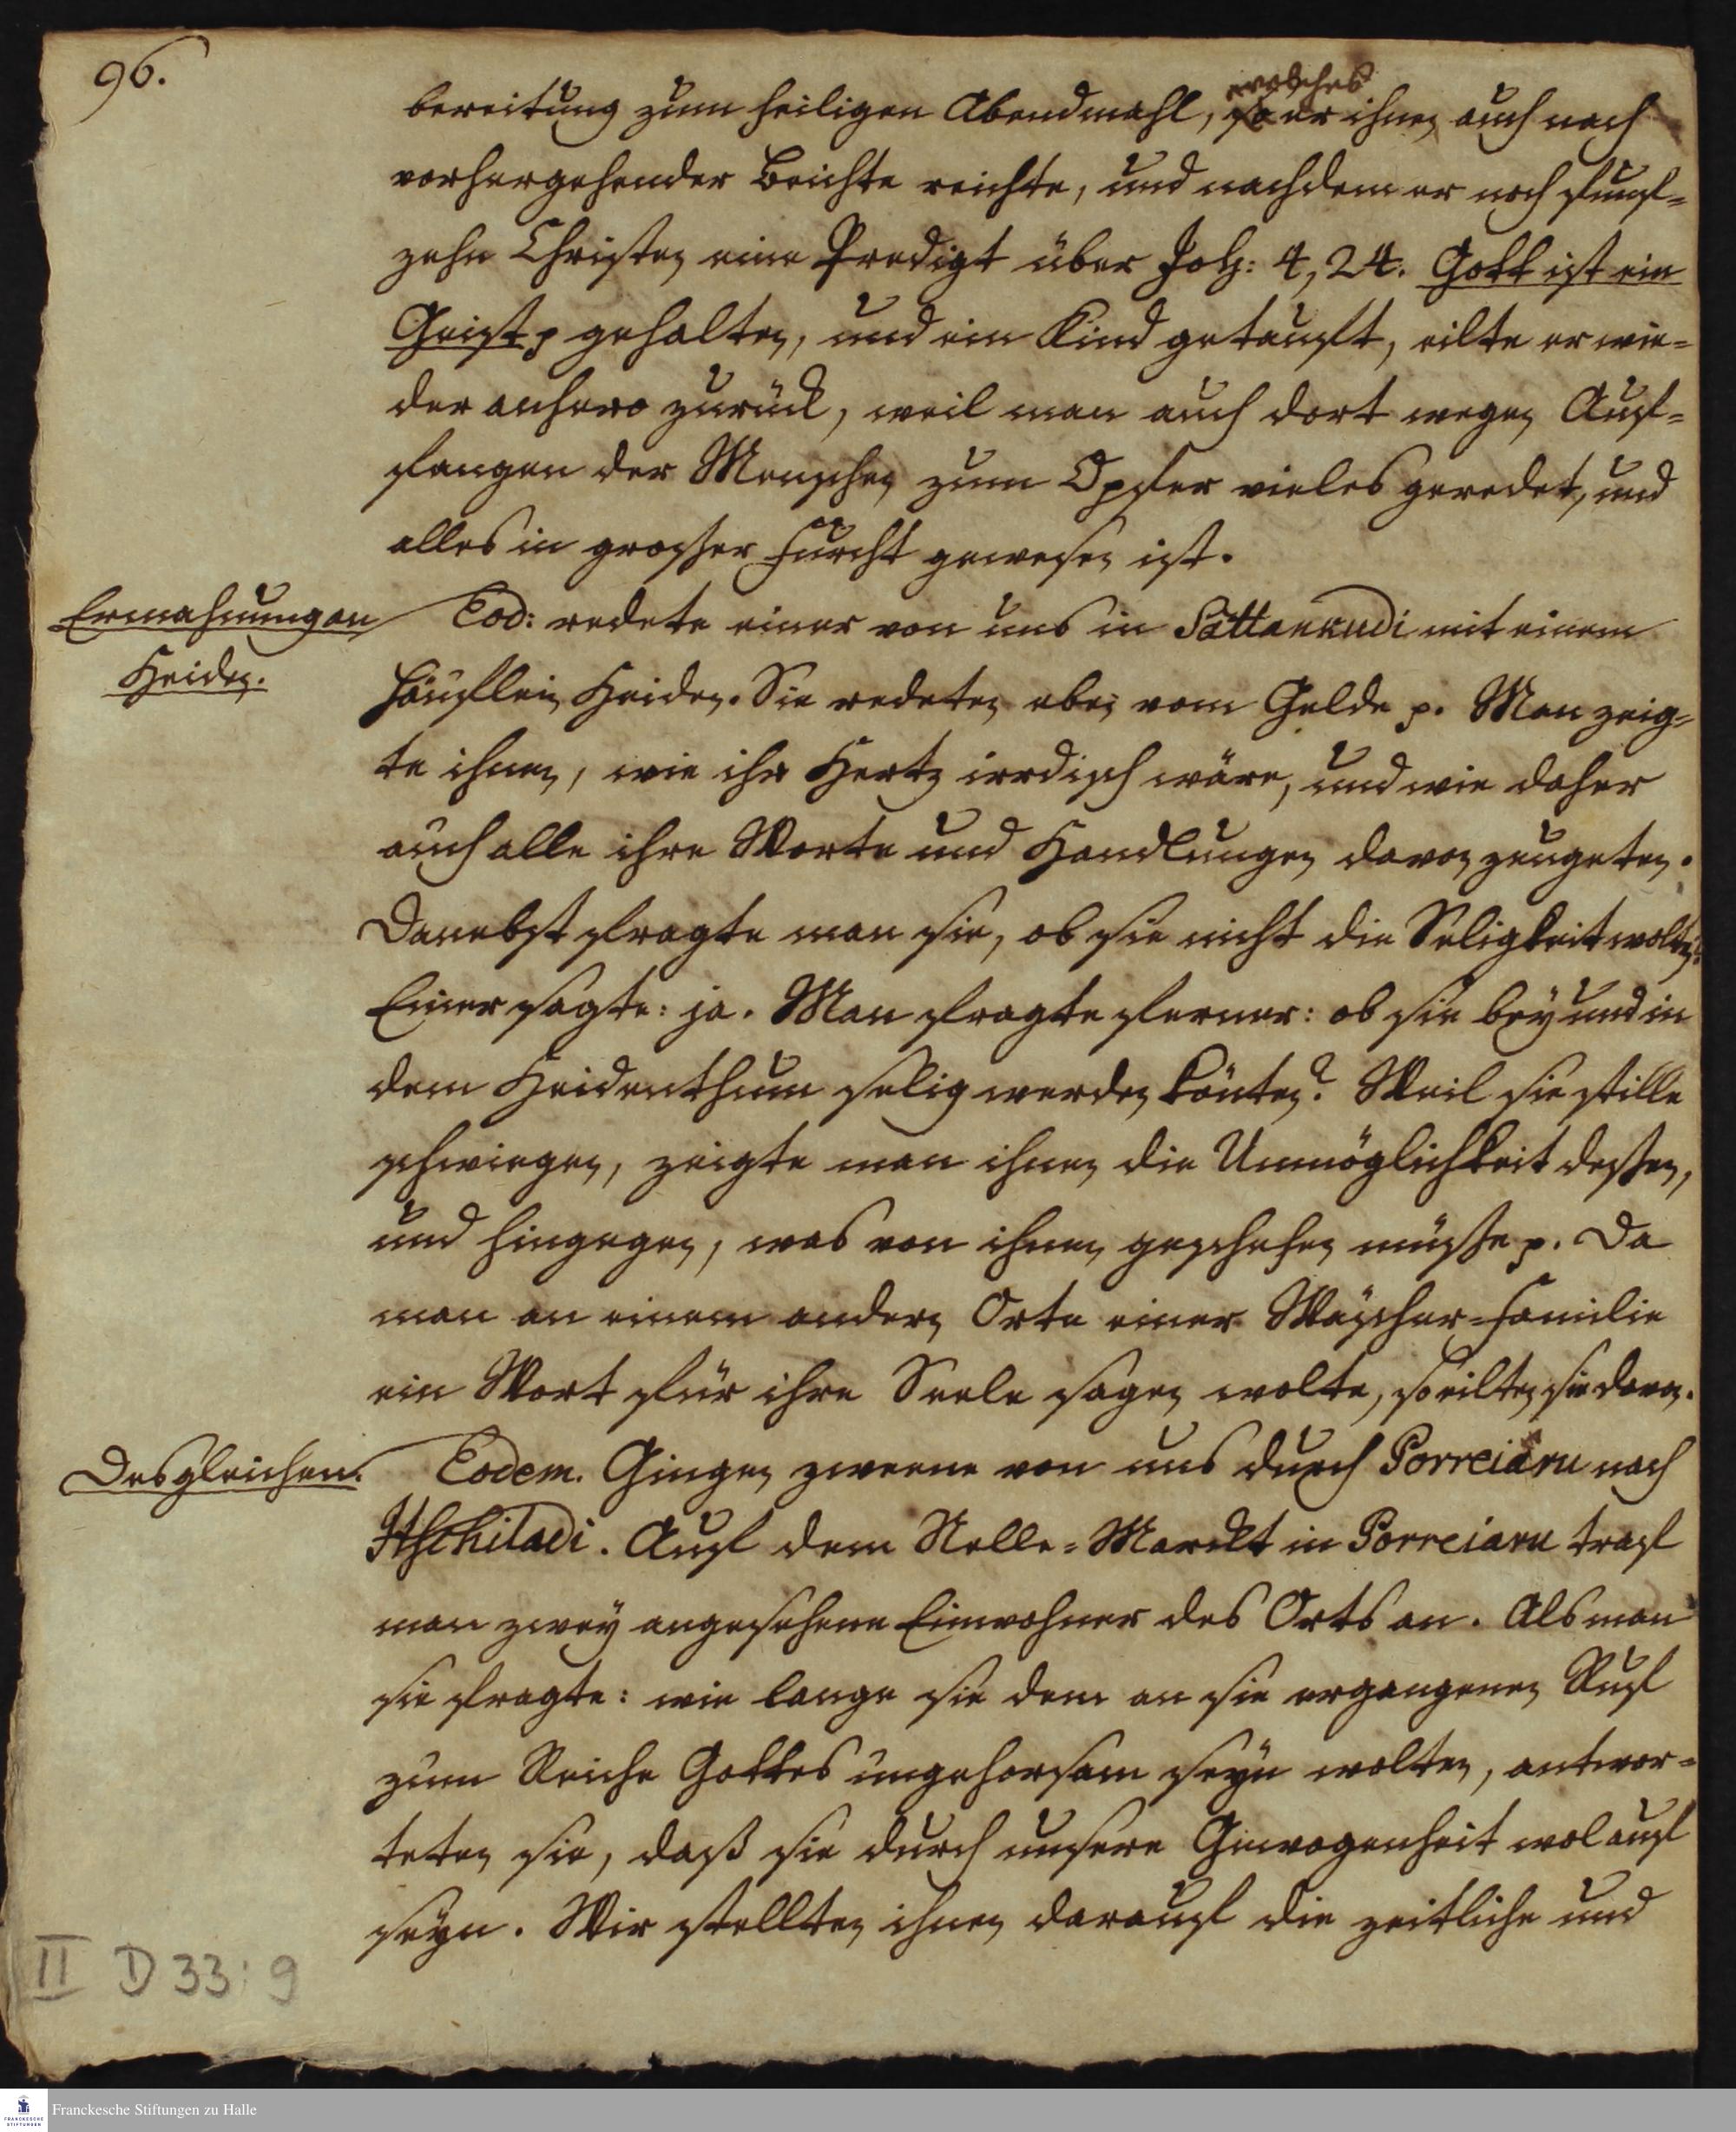 96.
welches
bereitung zum heiligen Abendmahl, so er ihnen auch nach
vorhergehender Beichte reichte, und nachdem er noch funf-
zehn Christen eine Predigt über Joh: 4, 24. Gott ist ein
Geist p gehalten, und ein Kind getauft, eilte er wie-
der anhero zurück, weil man auch dort wegen Auf-
fangen der Menschen zum Opfer vieles geredet, und
alles in grosser Furcht gewesen ist.
Ermahnung an
Heiden.
Eod: redete einer von uns in Sattankudi mit einem
Häuflein Heiden. Sie redeten eben vom Gelde p. Man zeig-
te ihnen, wie ihr Hertz irrdisch wäre, und wie daher
auch alle ihre Worte und Handlungen davon zeugeten.
Danebst fragte man sie, ob sie nicht die Seligkeit wolten?
Einer sagte: ja. Man fragte ferner: ob sie bey und in
dem Heidenthum selig werden könten? Weil sie stille
schwiegen, zeigte man ihnen die Unmöglichkeit dessen,
und hingegen, was von ihnen geschehen müsse p. Da
man an einem andern Orte einer Wäscher-Familie
ein Wort für ihre Seele sagen wolte, so eilten sie davon.
Desgleichen.
Eodem. Gingen zweene von uns durch Porreiaru nach
Itschiladi. Auf dem Nelle-Marckt in Porreiaru traf
man zwey angesehene Einwohner des Orts an. Als man
sie fragte: wie lange sie dem an sie ergangenen Ruf
zum Reiche Gottes ungehorsam seyn wolten, antwor-
teten sie, daß sie durch unsere Gewogenheit wol auf
seyn. Wir stellten ihnen darauf die zeitliche und
II D 33:9
Franckesche Stiftungen zu Halle
FRANCKESCHE
STIFTUNGEN